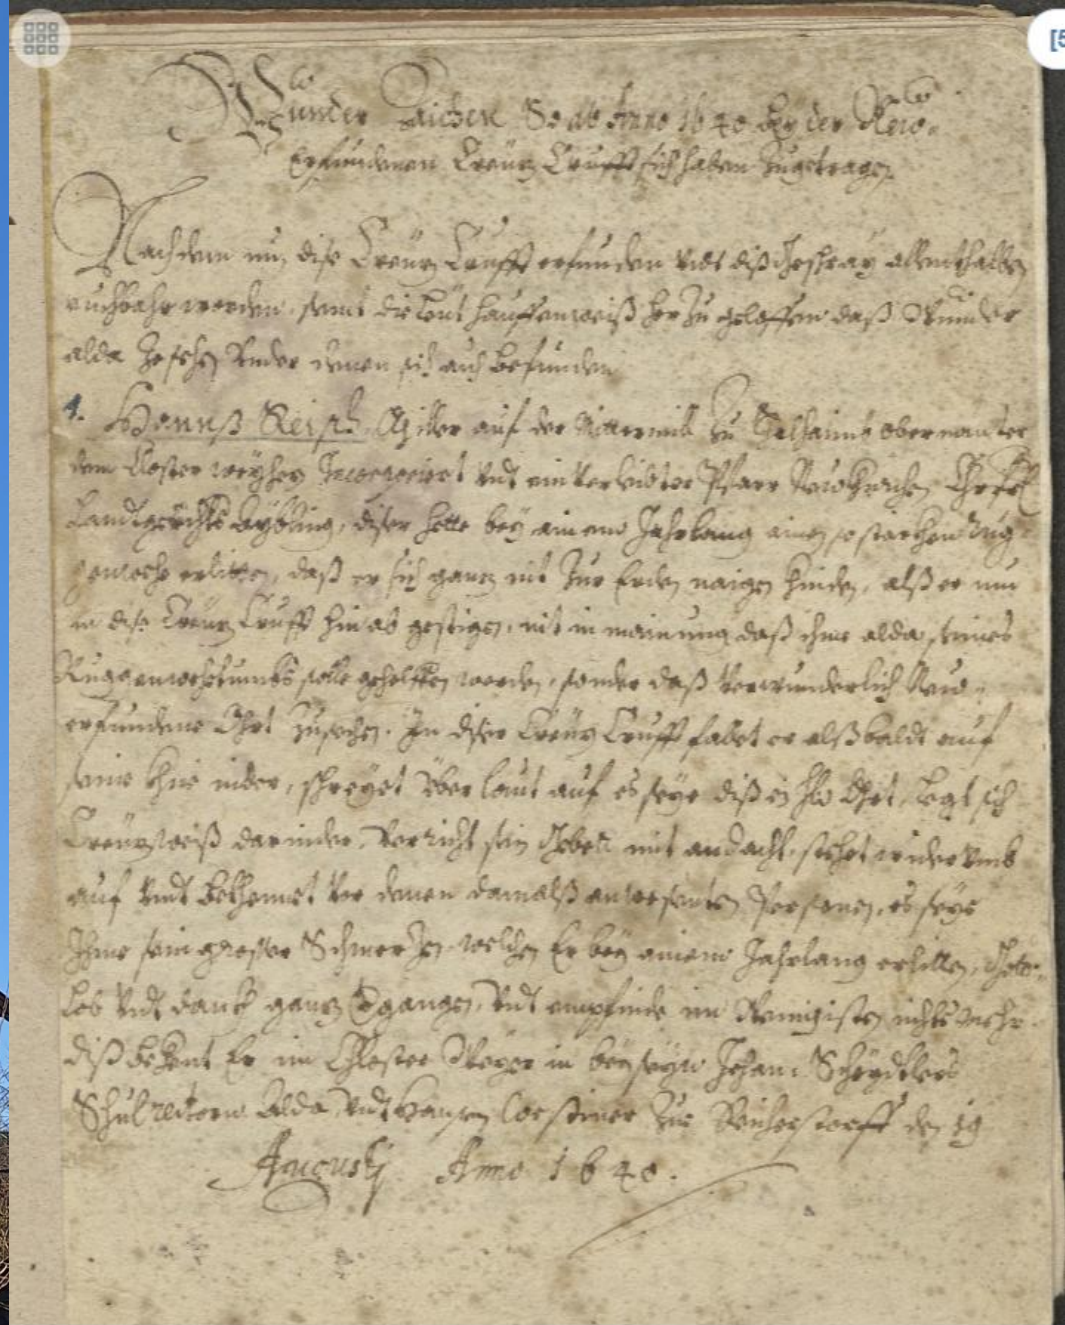 Wunder Zaichen So ab Anno 1640 Bey der New
Erfundenen Creüz Crufft sich haben Zugetragen
Nachdem nun dise Creüz Crufft erfunden vndt diß Geschray allenthalben
ruchbahr worden, seint die Leüt hauffenweiß her Zu geloffen daß Wunder
alda Zesehen Vnder denen sich auch befunden
1. Hannß Reisch Miller auf der Mill Zu obernanter
dem Closter Weyhen Incorporiert vndt Pfarr
Landtgerichts Aybling, diser hette bey ainem Jahrlang ainen so starkhen Rug
gewehe erlitten, daß er sich ganz nit Zur Erden naigen khinden, alß er nun
in dise Creüz Crufft hinab gestigen, nit in mainung daß ihme alda seines
Ruggenwehetumbs solle geholffen werden, sonder daß verwunderlich New
erfundene Ohrt Zusehen. In diser Creüz Crufft falet er alßbaldt auf
seine Khnie nider, schreyet Über laut auf es seye diß ein Ohrt, legt sich
Creüzweiß darnider, Verricht sein Gebett mit andacht, stehet widerumb
auf vndt Bekhennet vor denen damalß anwesenten Persohnen, es seye
Ihme sein grosser Schmerzen welchen Er bey ainem Jahrlang erlitten, Gott
Lob vndt danckh ganz vergangen, vndt empfinde im Wenigisten nichts mehr
diß bekent Er im Closter Weyer in beysein Johann Scheydlers
Schulrectorn Alda, vndt Hansen den 19
Augusty Anno 1640.